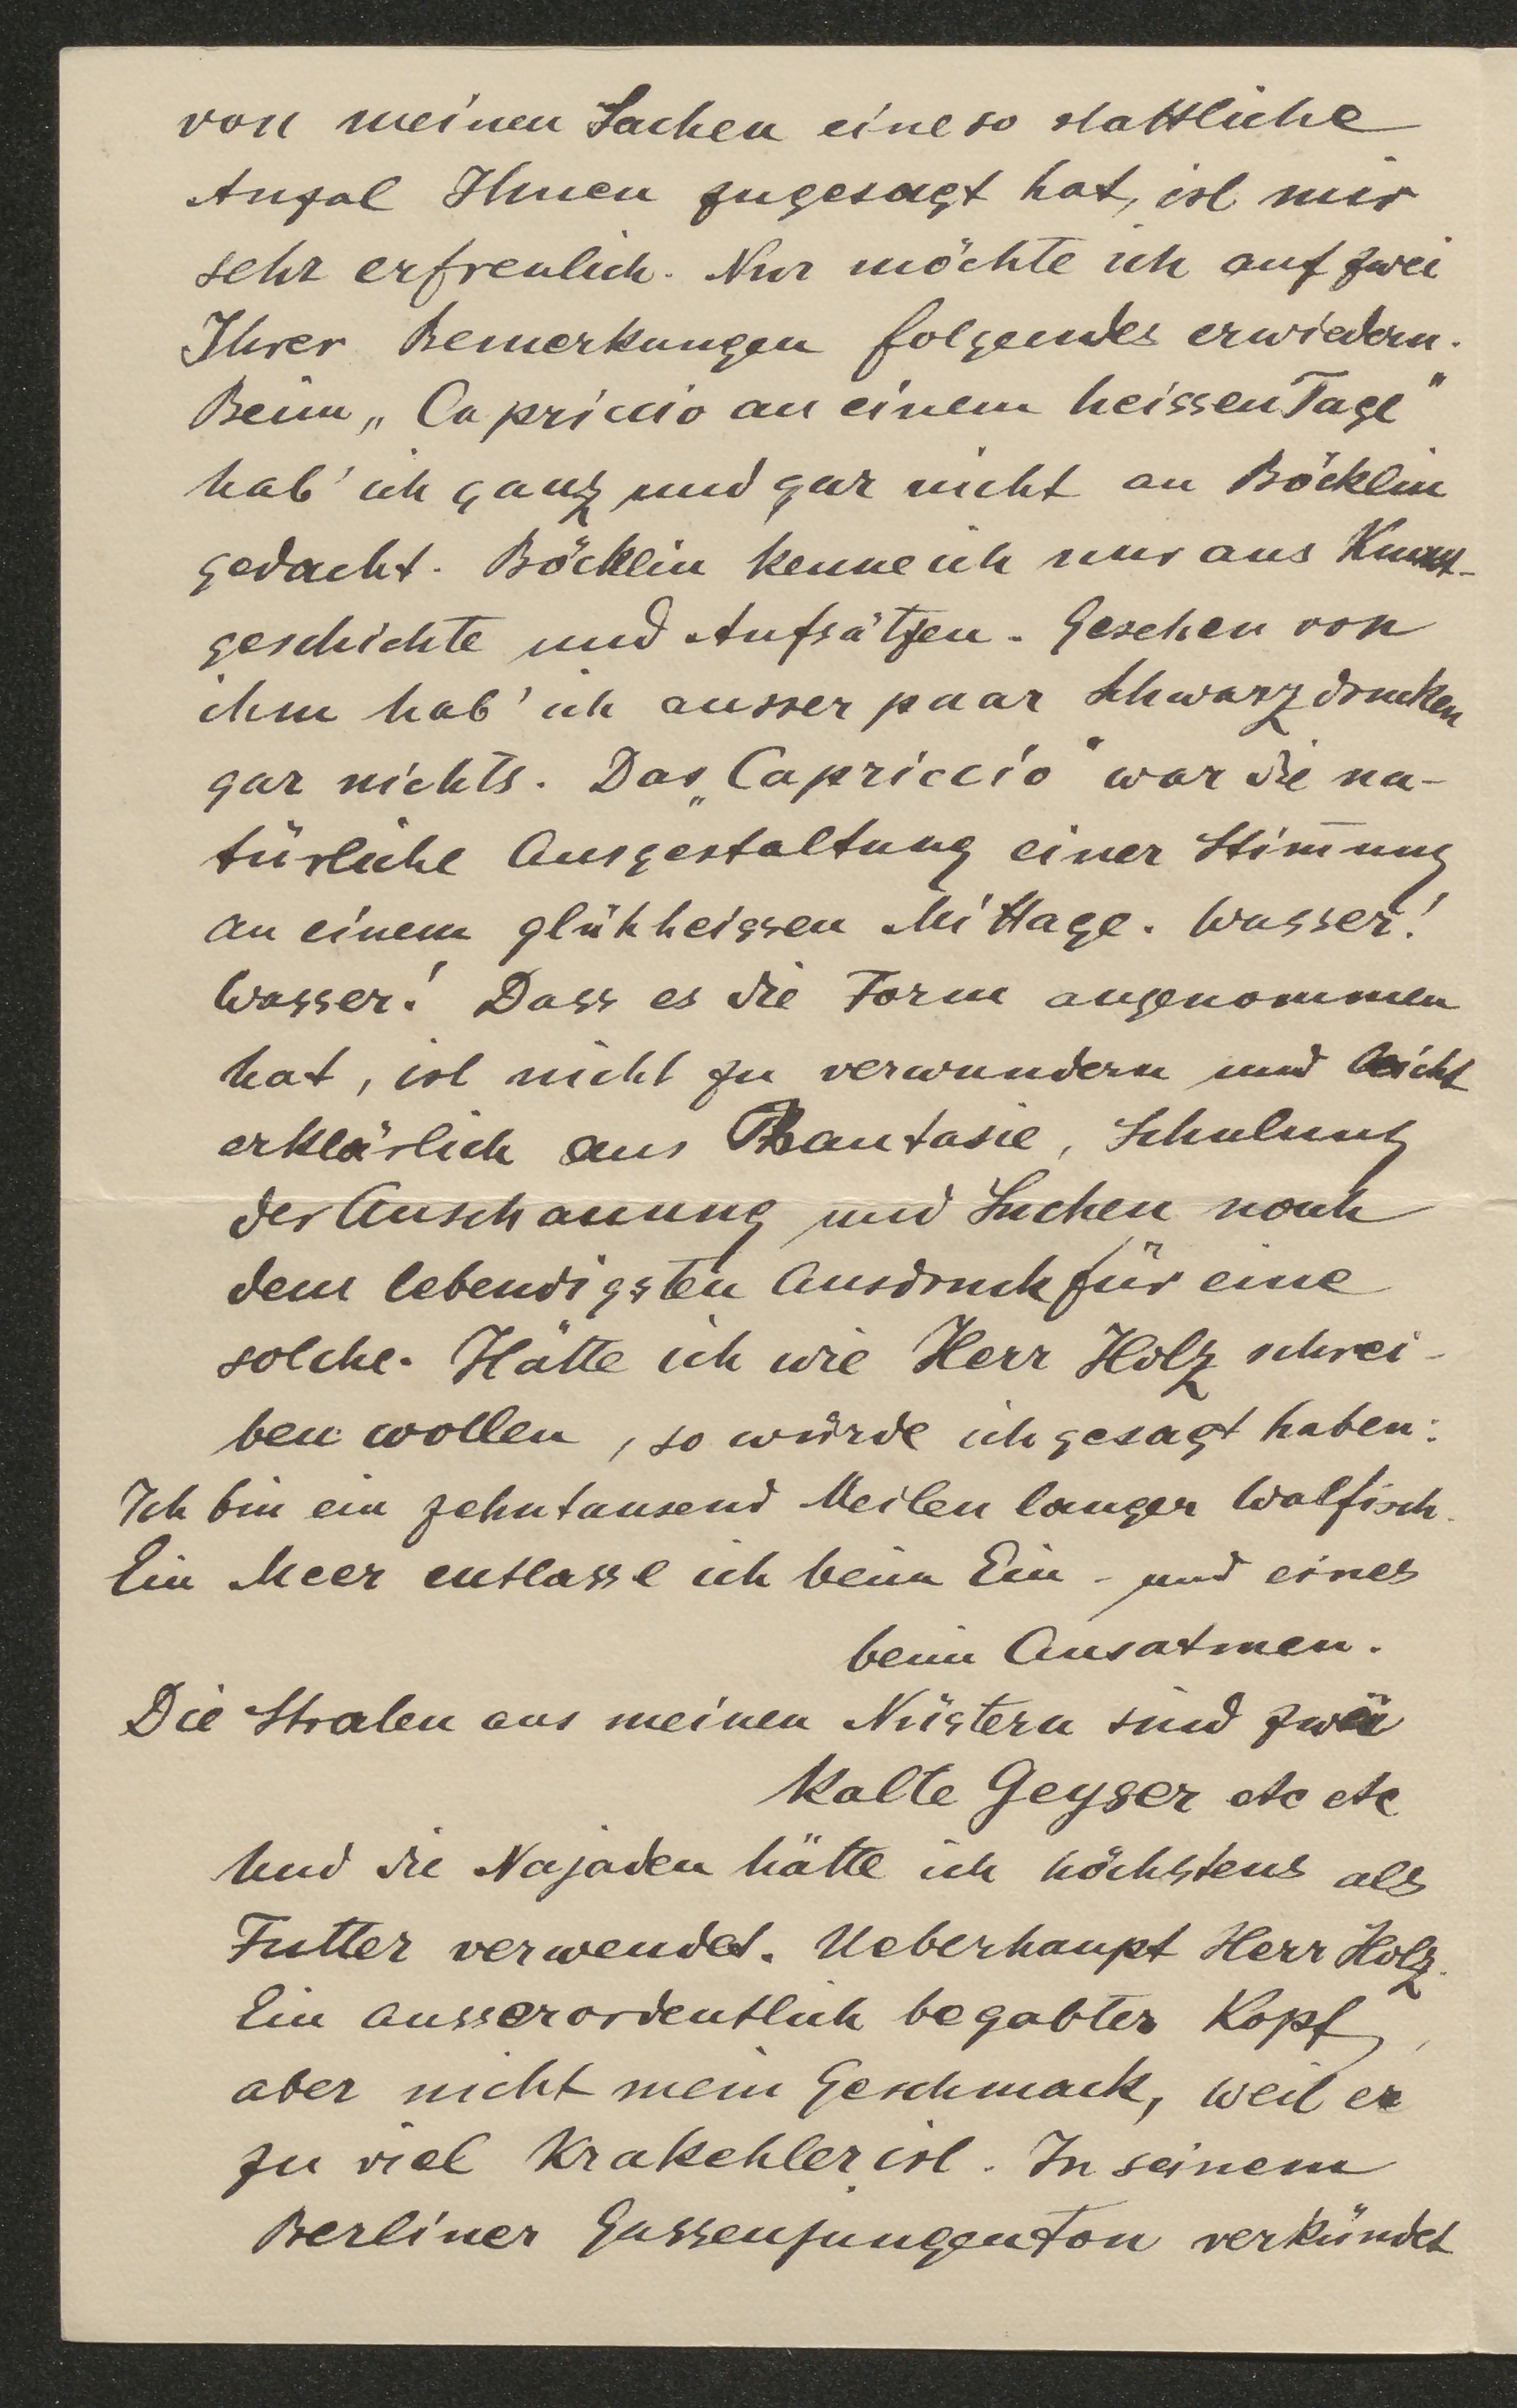 von meinen Sachen eine so stattliche
Anzal Ihnen zugesagt hat, ist mir
sehr erfreulich. Nur möchte ich auf zwei
Ihrer Bemerkungen folgendes erwiedern.
Beim „Capriccio an einem heissen Tage"
hab' ich ganz und gar nicht an Böcklin
gedacht. Böcklin kenne ich nur aus Kunst-
geschichte und Aufsätzen. Gesehen von
ihm hab' ich ausser paar Schwarzdrucken
gar nichts. Das „Capriccio" war die na-
türliche Ausgestaltung einer Stim̄ung
an einem glühheissen Mittage. Wasser!
Wasser! Dass es die Form angenommen
hat, ist nicht zu verwundern und leicht
erklärlich aus Phantasie, Schulung
der Anschauung und Suchen nach
dem lebendigsten Ausdruck für eine
solche. Hätte ich wie Herr Holz schrei-
ben wollen, so würde ich gesagt haben:
Ich bin ein zehntausend Meilen langer Walfisch.
Ein Meer entlasse ich beim Ein- und eines
beim Ausatmen.
Die Stralen aus meinen Nüstern sind zwei
kalte Geyser etc etc
Und die Najaden hätte ich höchstens als
Futter verwendet. Ueberhaupt Herr Holz.
Ein ausserordentlich begabter Kopf,
aber nicht mein Geschmack, weil er
zu viel Krakehler ist. In seinem
Berliner Gassenjungenton verkündet